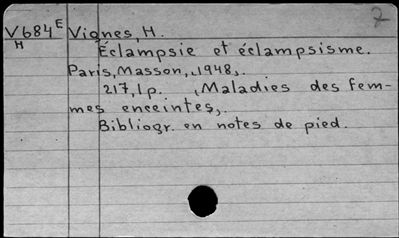 7
V684E Vignes, H.
H Éclampsie et éclampsisme.
Paris, Masson, 1948.
217, 1p. (Maladies des fem-
mes enceintes,.
Bibliogr. en notes de pied.